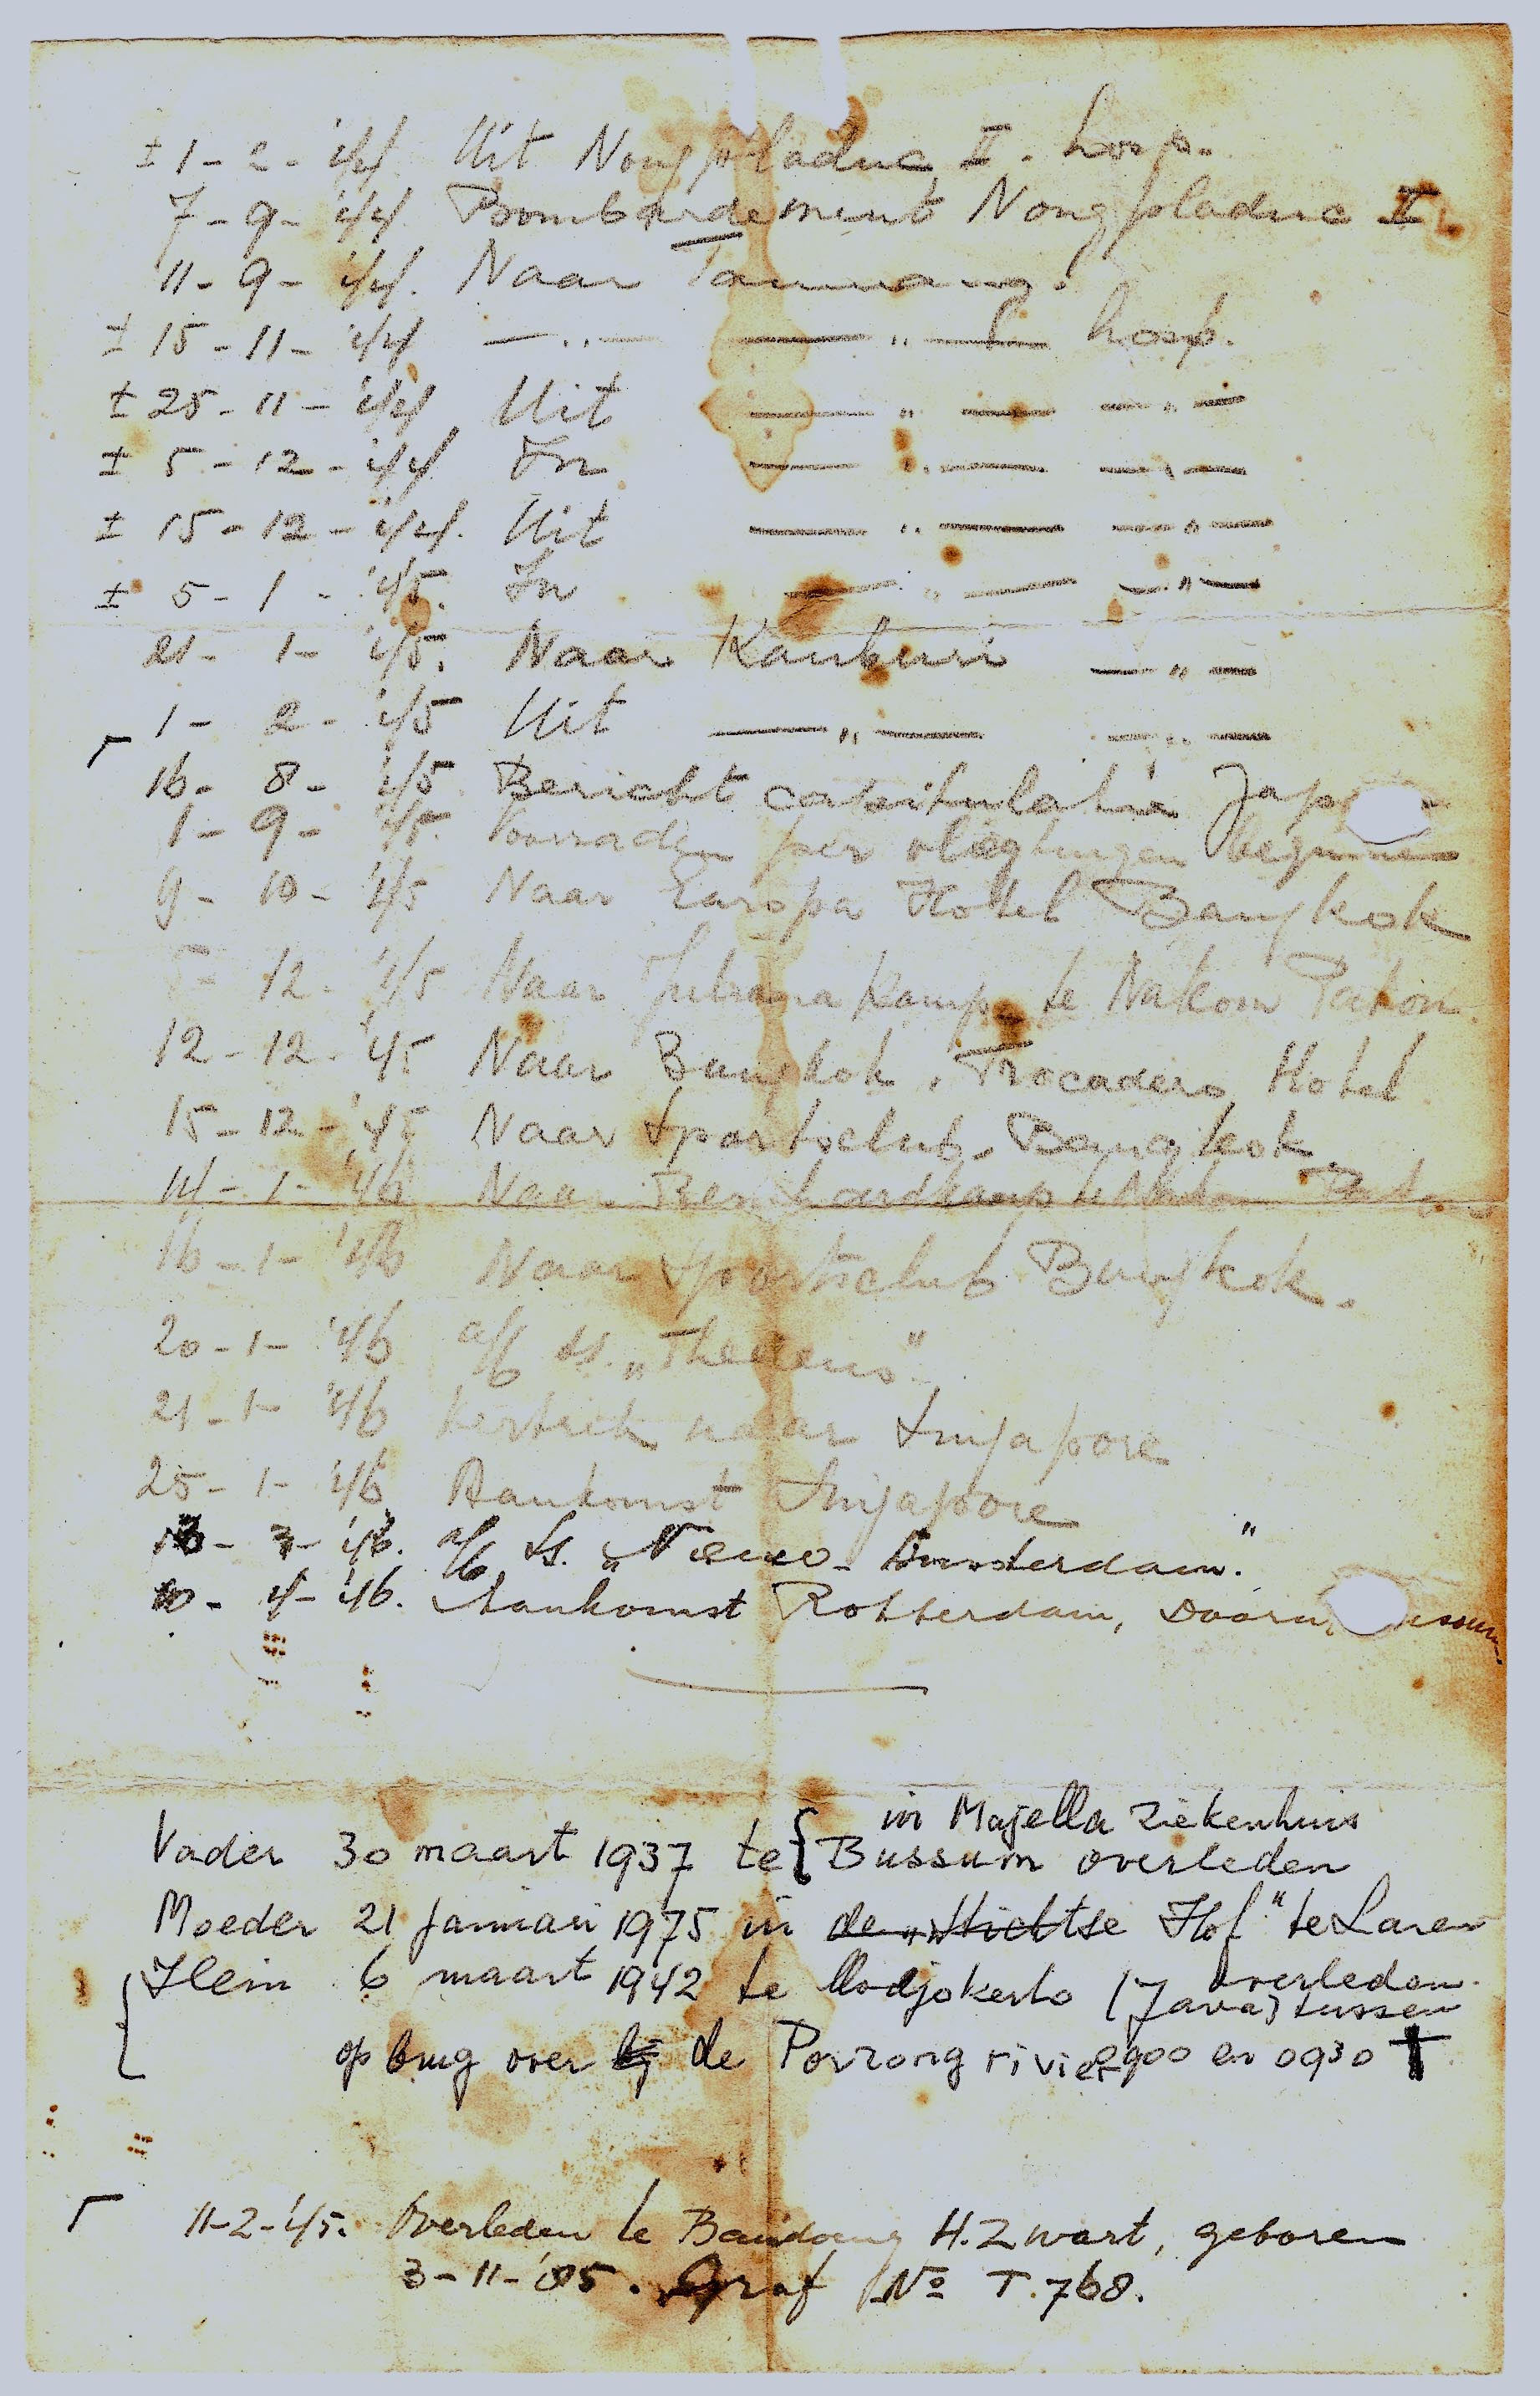 ± 1 - 2 - '44. Uit Nongpladuc II. hosp.
7 - 9 - '44 Bombardement Nongpladuc II.
11 - 9 - '44. Naar Tamuang.
± 15 - 11 - '44 — „ — — „ — hosp.
± 25 - 11 - '44 Uit — „ — — „ —
± 5 - 12 - '44 In — „ — — „ —
± 15 - 12 - '44. Uit — „ — — „ —
± 5 - 1 - '45. In — „ — — „ —
21 - 1 - '45. Naar Kanburi — „ —
1 - 2 - '45 Uit — „ — — „ —
16 - 8 - '45 Bericht capitulatie Jap
1 - 9 - '45. Voorraden per vliegtuigen beginnen
9 - 10 - '45 Naar Europa Hotel Bangkok
12 - '45 Naar Juliana Kamp te Nakom Paton.
12 - 12 - '45 Naar Bangkok, Trocadero Hotel
15 - 12 - '45 Naar Sportsclub, Bangkok.
14 - 1 - '46 Naar Bernhardkamp te Nakom Paton
16 - 1 - '46 Naar Sportsclub Bangkok.
20 - 1 - '46 a/b ss. „Theseus"
21 - 1 - '46 Vertrek naar Singapore
25 - 1 - '46 Aankomst Singapore
- 3 - '46. a/b ss. „Nieuw - Amsterdam."
10 - 4 - '46. Aankomst Rotterdam, Doorn,
in Majella ziekenhuis
Vader 30 maart 1937 te { Bussum overleden
Moeder 21 januari 1975 in de „Stichtse Hof" te Laren
overleden.
Hein 6 maart 1942 te Modjokerto (Java) tussen
op brug over bij de Porrong rivier 0900 en 0930 ✝
11-2-'45. Overleden te Bandoeng H. Zwart, geboren
3-11-'85. Graf No T.768.